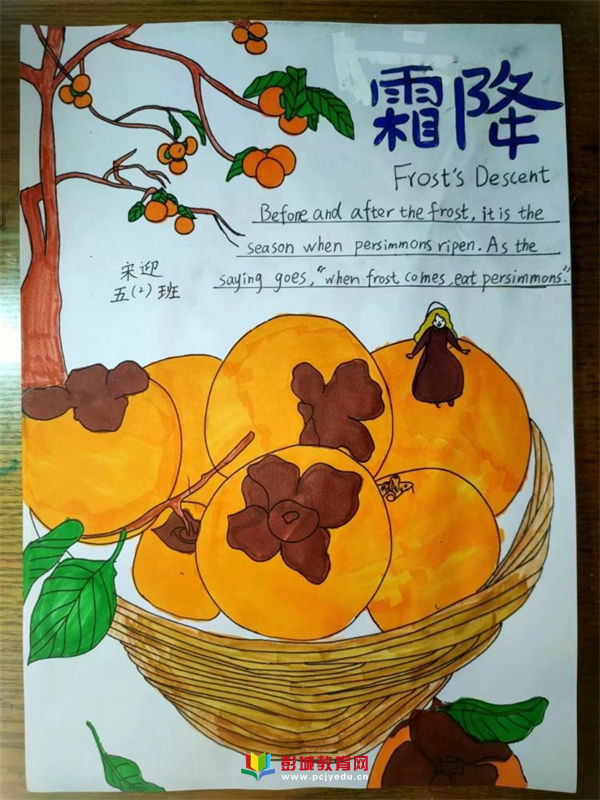 霜降
Frost's Descent
Before and after the frost, it is the
season when persimmons ripen. As the
saying goes, "when frost comes, eat persimmons."
宋迎
五(2)班
彭城教育网
www.pcjyedu.cn